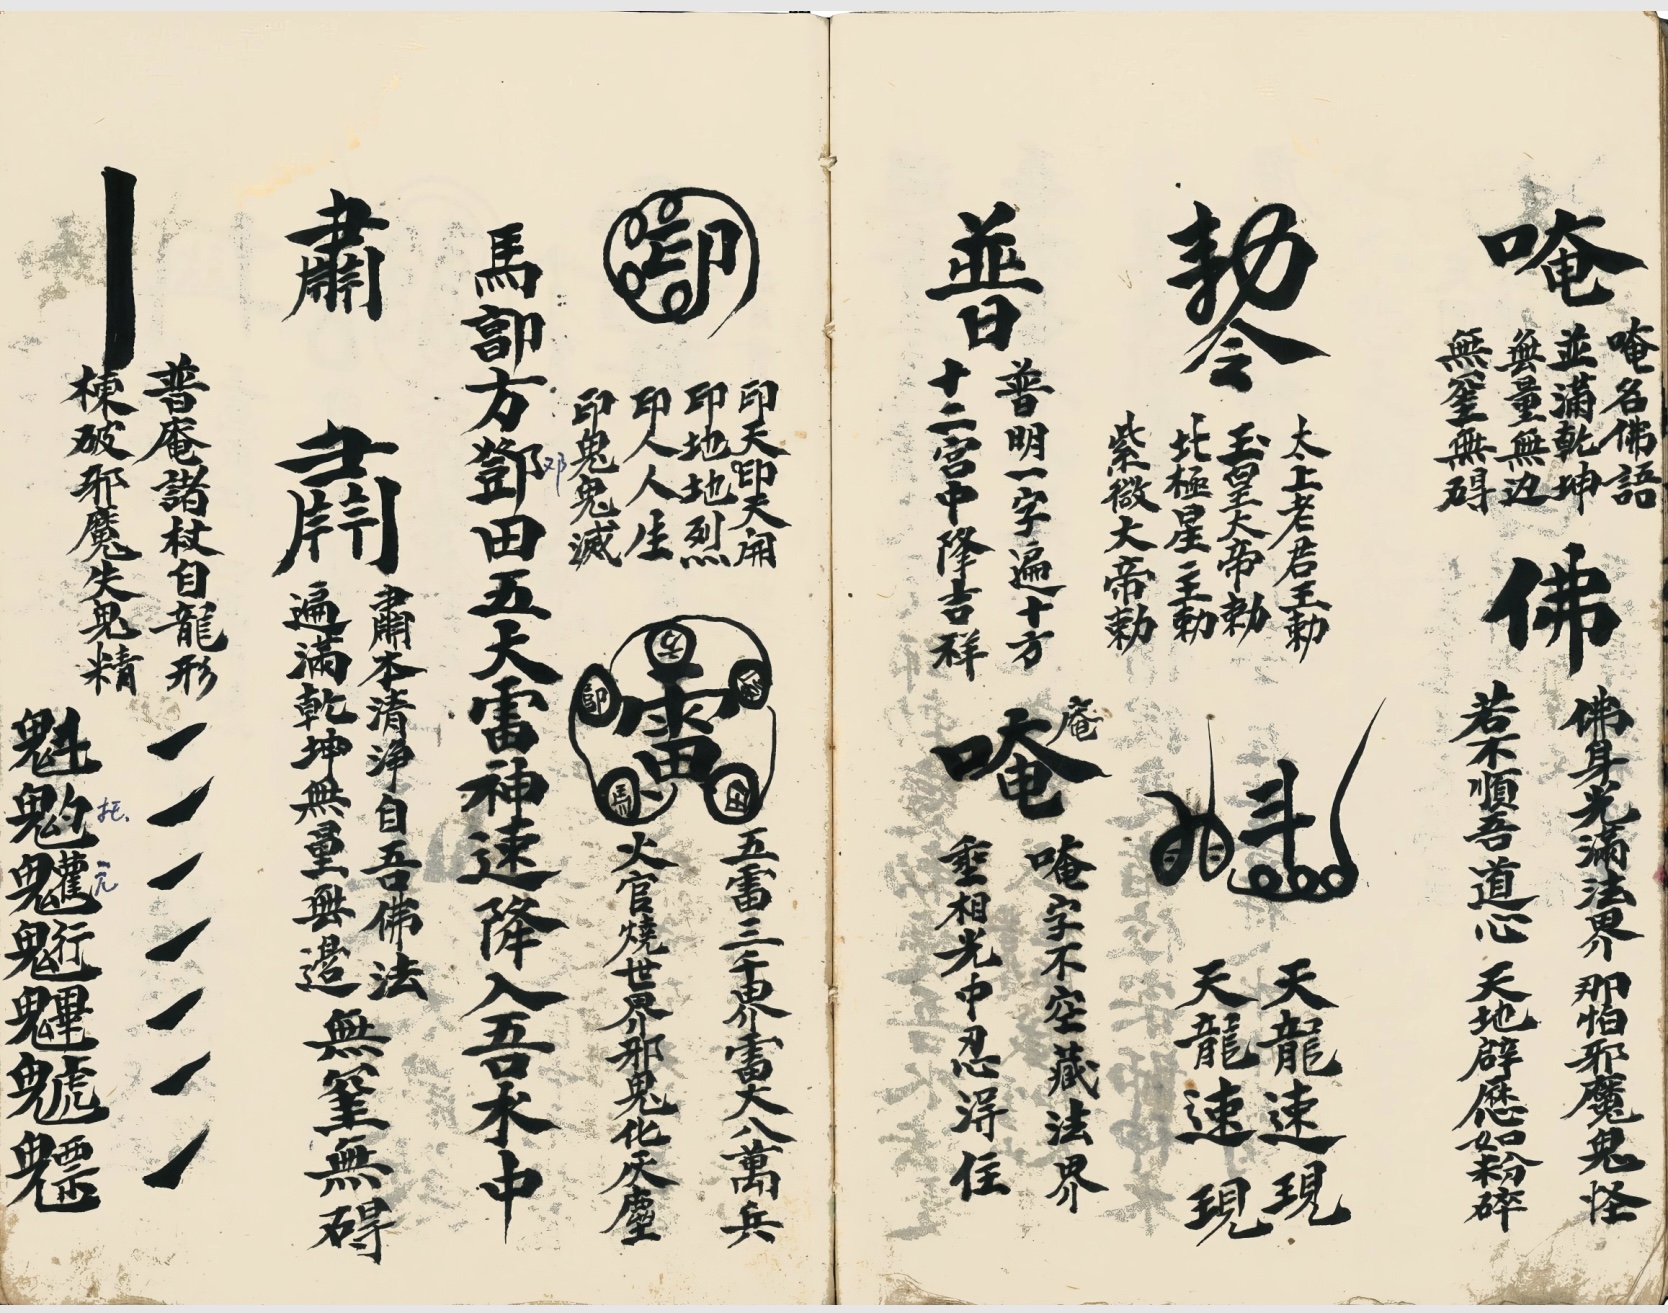 唵
唵名佛語
並滿乾坤
無量無边
無窒無碍
佛
佛身光滿法界 那怕邪魔鬼怪
若不順吾道心 天地辟歷如粉碎
勅令
太上老君王勅
玉皇大帝勅
北極星主勅
紫微大帝勅
斗
天龍速現
天龍速現
普
普明一字遍十方
十二宮中降吉祥
唵
庵
唵字不空藏法界
埀相光中忍淂住
印
印天印天開
印地地烈
印人人生
印鬼鬼滅
雷
田
馬
五雷三千界雷大八萬兵
火官燒世界邪鬼化灰塵
馬郭方鄧田五大雷神速降入吾水中
邓
肅
肅
肅本清淨自吾佛法
遍滿乾坤無量無邊
無窒無碍
普庵諸杖自龍形
楝破邪魔失鬼精
魁
䰢
魓